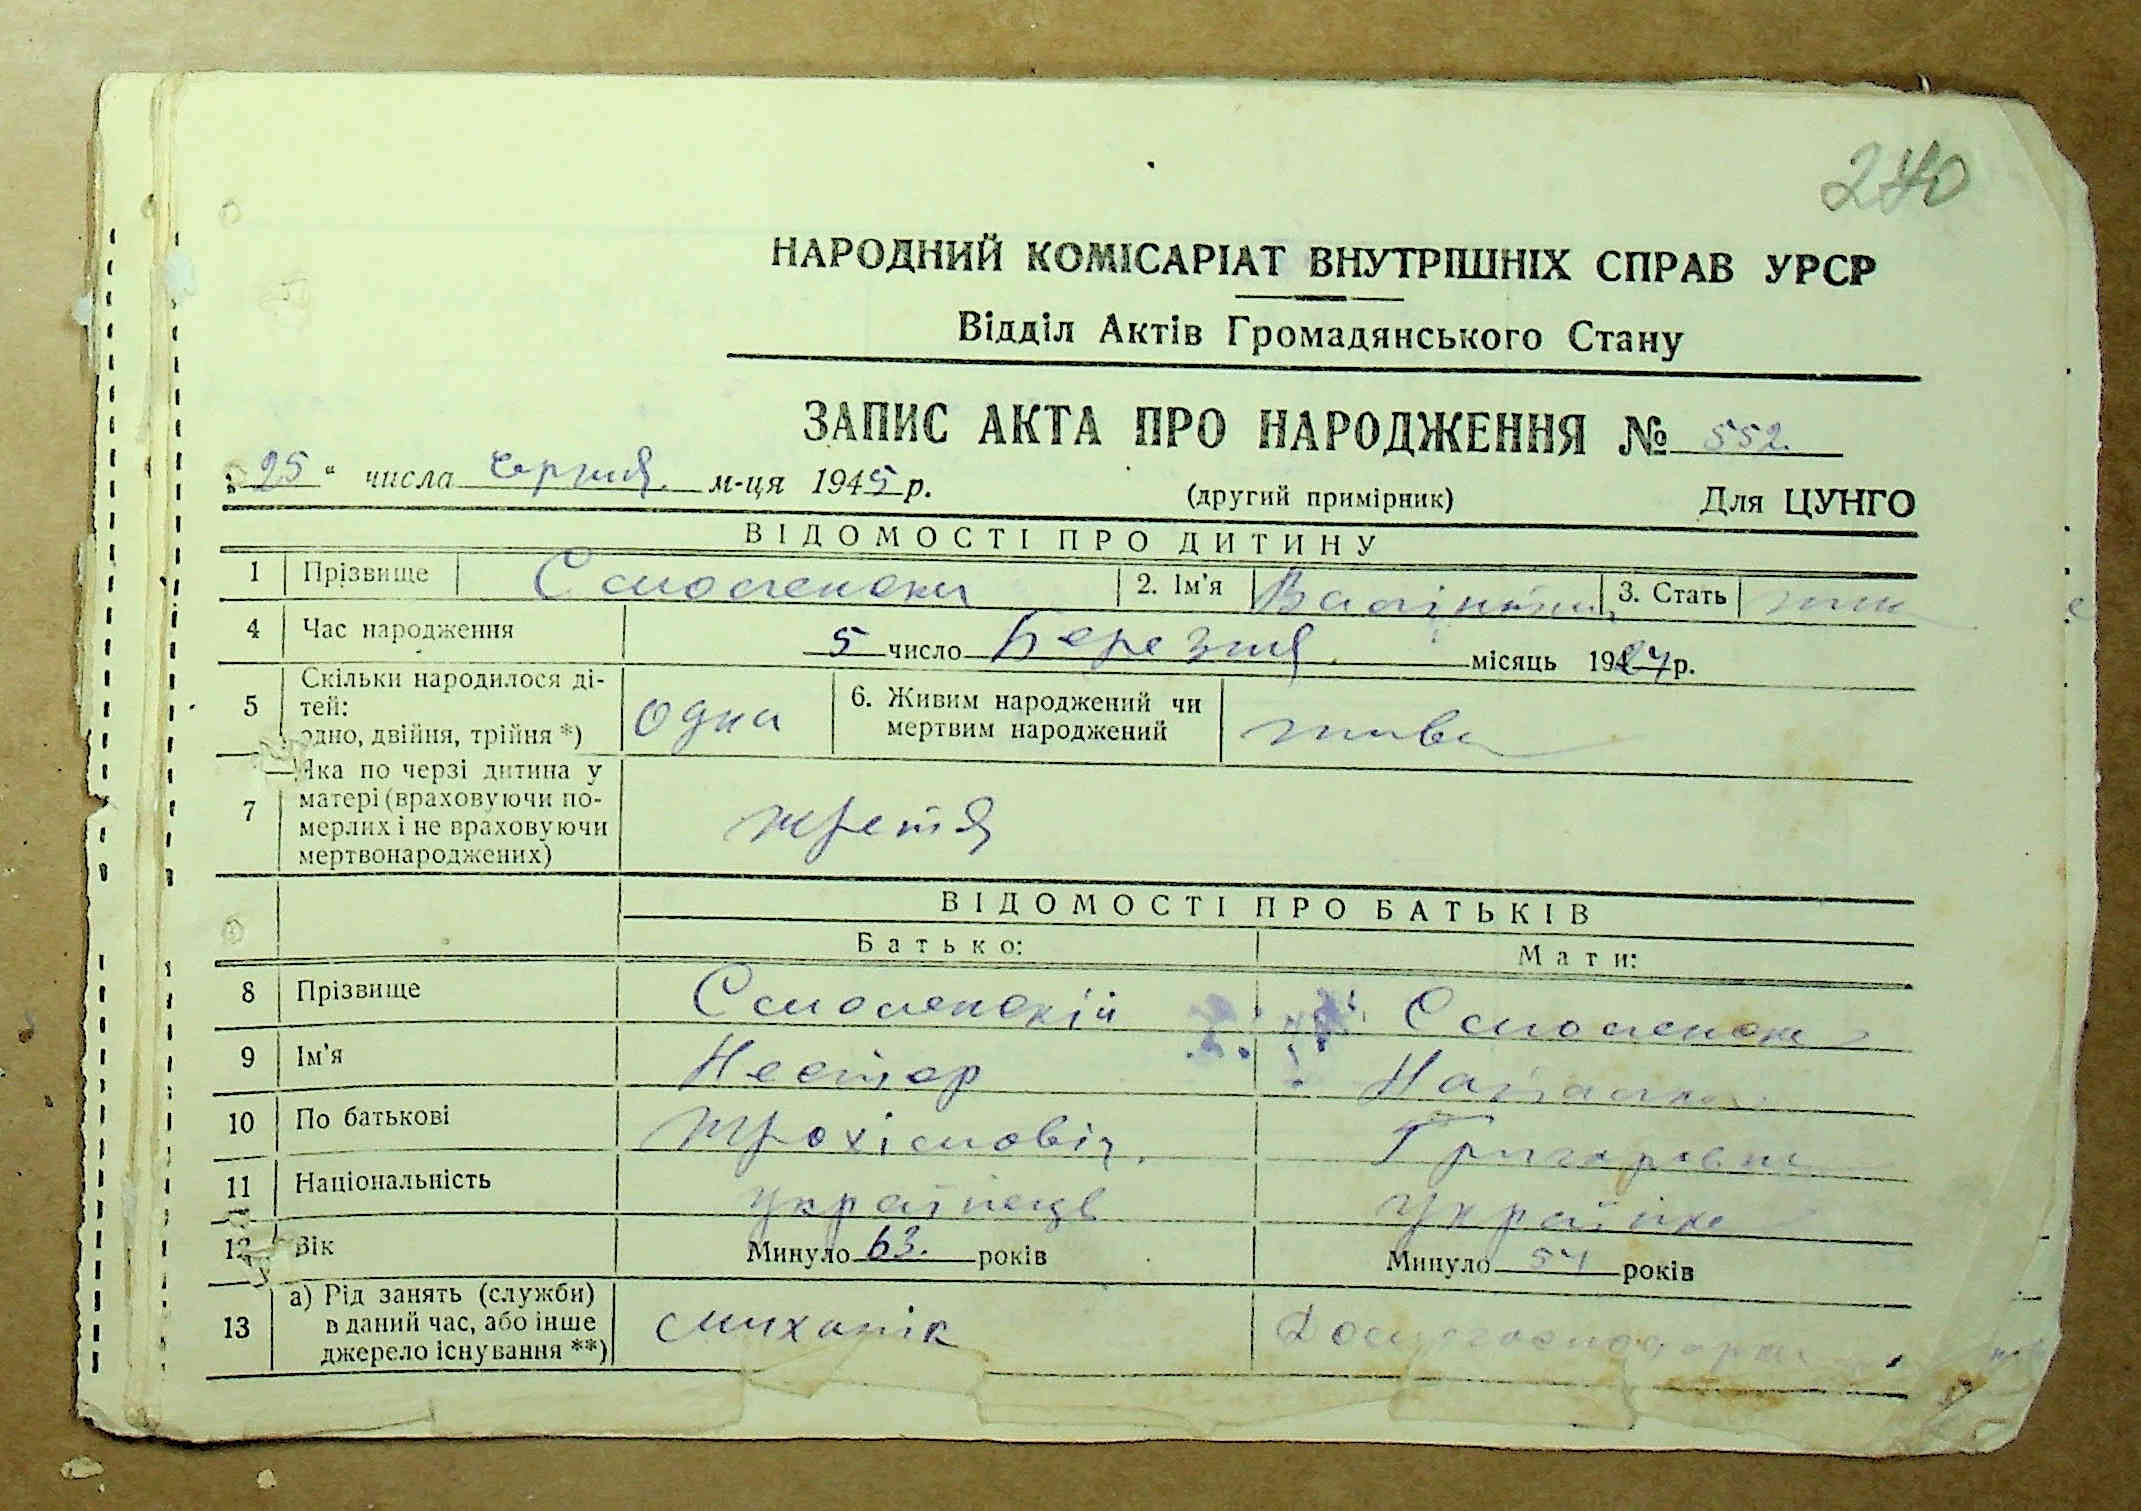 240
НАРОДНИЙ КОМІСАРІАТ ВНУТРІШНІХ СПРАВ УРСР
Відділ Актів Громадянського Стану
ЗАПИС АКТА ПРО НАРОДЖЕННЯ № 552.
„25“ числа червня м-ця 1945 р. (другий примірник) Для ЦУНГО
ВІДОМОСТІ ПРО ДИТИНУ
1 Прізвище 2. Ім'я 3. Стать жін
4 Час народження 5 число березня місяць 1924 р.
5 Скільки народилося дітей: одно, двійня, трійня *) одна 6. Живим народжений чи мертвим народжений жива
7 Яка по черзі дитина у
матері (враховуючи по-
мерлих і не враховуючи
мертвонароджених) третя
ВІДОМОСТІ ПРО БАТЬКІВ
Батько: Мати:
8 Прізвище Смоленскій
9 Ім'я Нестор
10 По батькові Трохімовіч Григоровна
11 Національність українець українка
12 Вік Минуло 63. років Минуло 54 років
13 а) Рід занять (служби)
в даний час, або інше
джерело існування **) михапік